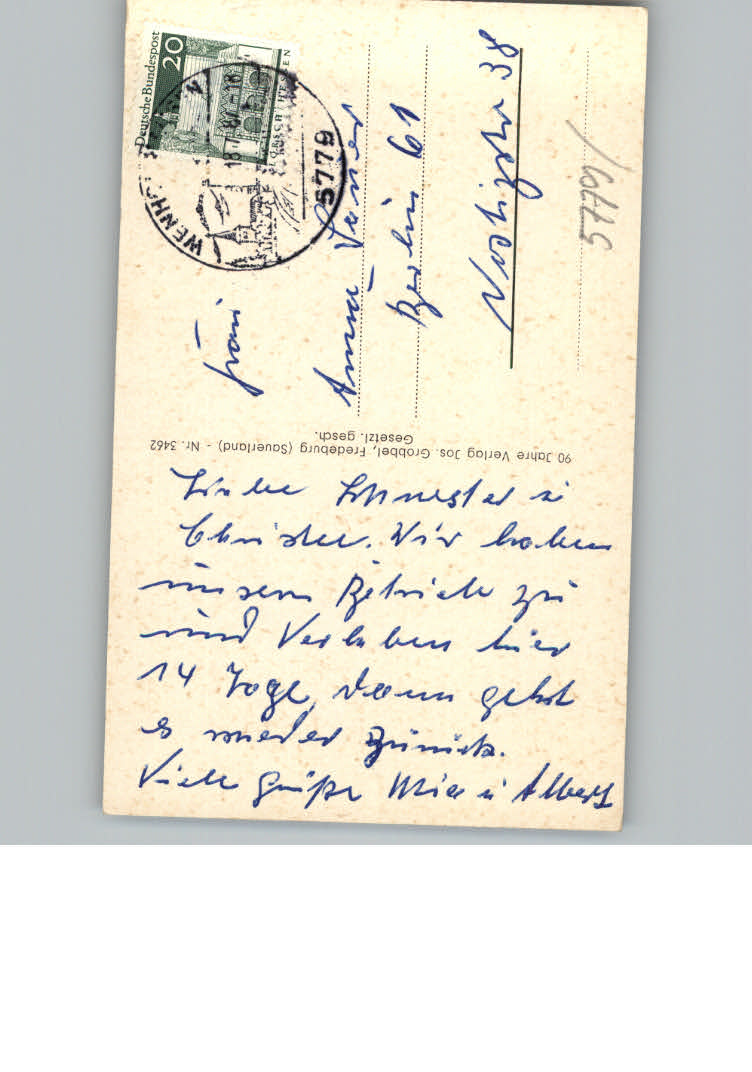 Deutsche Bundespost
20
LORSCH / HESSEN
WENHO
18.7.67-18
5779
Frau
Anna
Berlin 61
Nostizstr 38
5779/
90 Jahre Verlag Jos. Grobbel, Fredeburg (Sauerland) - Nr. 3462
Gesetzl. gesch.
Liebe Schwester u
Christel. Wir haben
unsern Betrieb zu
und Verleben hier
14 Tage, dann geht
es wieder zurück.
Viele Grüße Mia u Albert